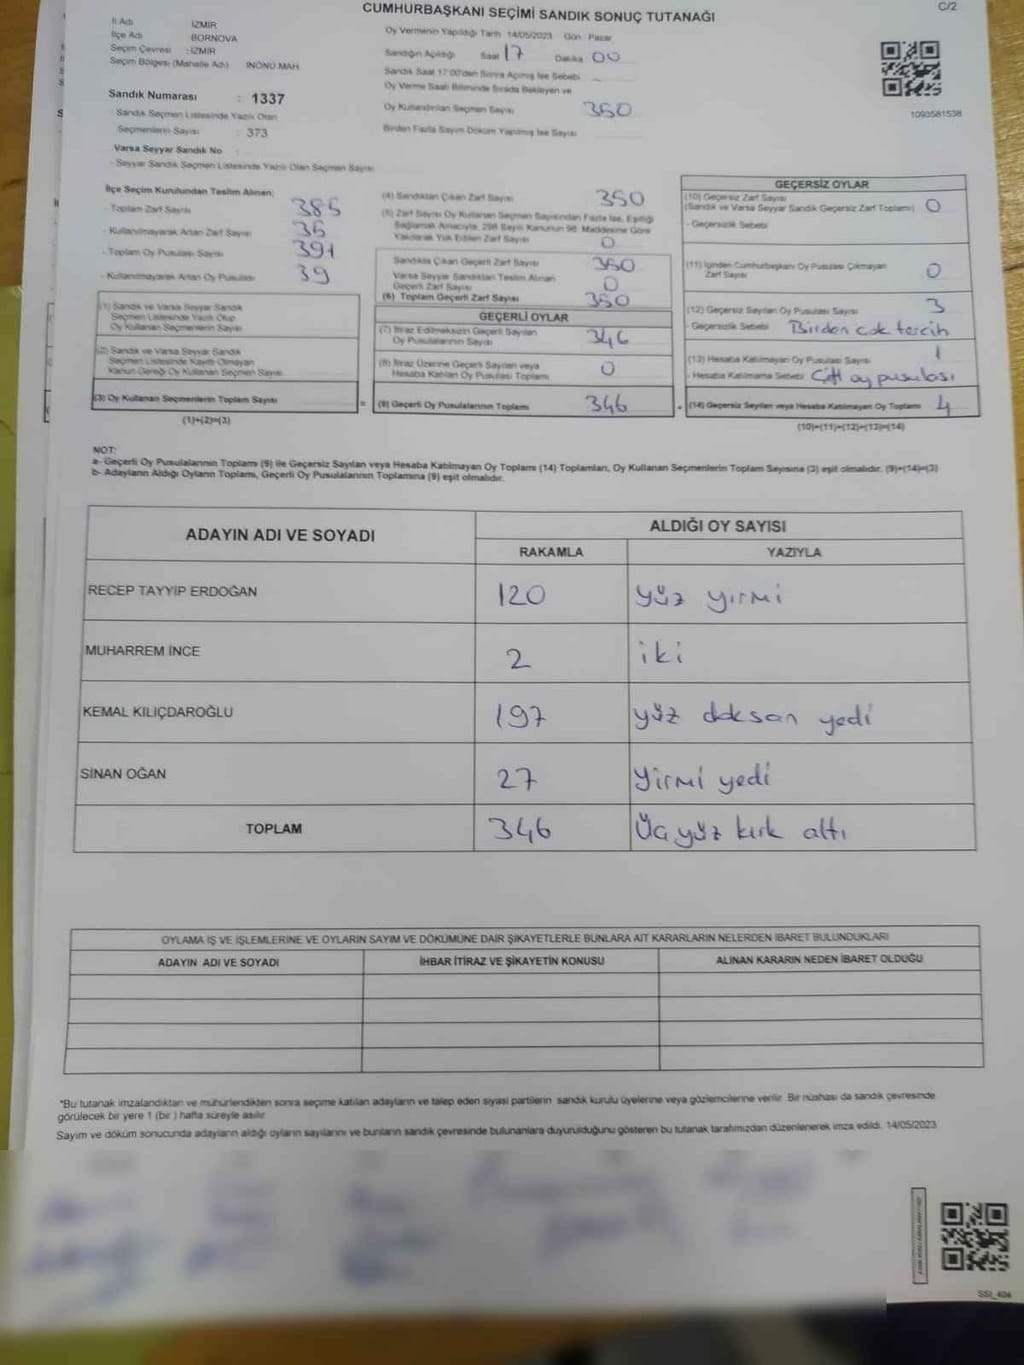 CUMHURBAŞKANI SEÇİMİ SANDIK SONUÇ TUTANAĞI
C/2
İl Adı İZMİR
İlçe Adı BORNOVA
Seçim Çevresi : İZMİR
Seçim Bölgesi (Mahalle Adı) İNÖNÜ MAH.
Sandık Numarası : 1337
Sandık Seçmen Listesinde Yazılı Olan
Seçmenlerin Sayısı : 373
Varsa Seyyar Sandık No
- Seyyar Sandık Seçmen Listesinde Yazılı Olan Seçmen Sayısı
Oy Vermenin Yapıldığı Tarih 14/05/2023 Gün : Pazar
Sandığın Açıldığı Saat 17 Dakika 00
Sandık Saat 17:00'den Sonra Açılmış İse Sebebi
Oy Verme Saati Bitiminde Sırada Bekleyen ve
Oy Kullandırılan Seçmen Sayısı 350
Birden Fazla Sayım Döküm Yapılmış İse Sayısı
1093581538
İlçe Seçim Kurulundan Teslim Alınan;
- Toplam Zarf Sayısı 385
- Kullanılmayarak Artan Zarf Sayısı 35
- Toplam Oy Pusulası Sayısı 391
- Kullanılmayarak Artan Oy Pusulası 39
(1) Sandık ve Varsa Seyyar Sandık
Seçmen Listesinde Yazılı Olup
Oy Kullanan Seçmenlerin Sayısı
(2) Sandık ve Varsa Seyyar Sandık
Seçmen Listesinde Kayıtlı Olmayan
Kanun Gereği Oy Kullanan Seçmen Sayısı
(3) Oy Kullanan Seçmenlerin Toplam Sayısı
(1)+(2)=(3)
(4) Sandıktan Çıkan Zarf Sayısı 350
(5) Zarf Sayısı Oy Kullanan Seçmen Sayısından Fazla İse, Eşitliği
Sağlamak Amacıyla, 298 Sayılı Kanunun 98. Maddesine Göre
Yakılarak Yok Edilen Zarf Sayısı 0
Sandıkta Çıkan Geçerli Zarf Sayısı 350
Varsa Seyyar Sandıktan Teslim Alınan
Geçerli Zarf Sayısı 0
(6) Toplam Geçerli Zarf Sayısı 350
GEÇERLİ OYLAR
(7) İtiraz Edilmeksizin Geçerli Sayılan
Oy Pusulalarının Sayısı 346
(8) İtiraz Üzerine Geçerli Sayılan veya
Hesaba Katılan Oy Pusulası Toplamı 0
= (9) Geçerli Oy Pusulalarının Toplamı 346
GEÇERSİZ OYLAR
(10) Geçersiz Zarf Sayısı
(Sandık ve Varsa Seyyar Sandık Geçersiz Zarf Toplamı) 0
- Geçersizlik Sebebi
(11) İçinden Cumhurbaşkanı Oy Pusulası Çıkmayan
Zarf Sayısı 0
(12) Geçersiz Sayılan Oy Pusulası Sayısı 3
- Geçersizlik Sebebi Birden çok tercih
(13) Hesaba Katılmayan Oy Pusulası Sayısı 1
- Hesaba Katılmama Sebebi Çift oy pusulası
+ (14) Geçersiz Sayılan veya Hesaba Katılmayan Oy Toplamı 4
(10)+(11)+(12)+(13)=(14)
NOT:
a- Geçerli Oy Pusulalarının Toplamı (9) ile Geçersiz Sayılan veya Hesaba Katılmayan Oy Toplamı (14) Toplamları, Oy Kullanan Seçmenlerin Toplam Sayısına (3) eşit olmalıdır. (9)+(14)=(3)
b- Adayların Aldığı Oyların Toplamı, Geçerli Oy Pusulalarının Toplamına (9) eşit olmalıdır.
ADAYIN ADI VE SOYADI
ALDIĞI OY SAYISI
RAKAMLA YAZIYLA
RECEP TAYYİP ERDOĞAN 120 yüz yirmi
MUHARREM İNCE 2 iki
KEMAL KILIÇDAROĞLU 197 yüz doksan yedi
SİNAN OĞAN 27 yirmi yedi
TOPLAM 346 Üç yüz kırk altı
OYLAMA İŞ VE İŞLEMLERİNE VE OYLARIN SAYIM VE DÖKÜMÜNE DAİR ŞİKAYETLERLE BUNLARA AİT KARARLARIN NELERDEN İBARET BULUNDUKLARI
ADAYIN ADI VE SOYADI İHBAR İTİRAZ VE ŞİKAYETİN KONUSU ALINAN KARARIN NEDEN İBARET OLDUĞU
*Bu tutanak imzalandıktan ve mühürlendikten sonra seçime katılan adayların ve talep eden siyasi partilerin sandık kurulu üyelerine veya gözlemcilerine verilir. Bir nüshası da sandık çevresinde
görülecek bir yere 1 (bir ) hafta süreyle asılır.
Sayım ve döküm sonucunda adayların aldığı oyların sayılarını ve bunların sandık çevresinde bulunanlara duyurulduğunu gösteren bu tutanak tarafımızdan düzenlenerek imza edildi. 14/05/2023